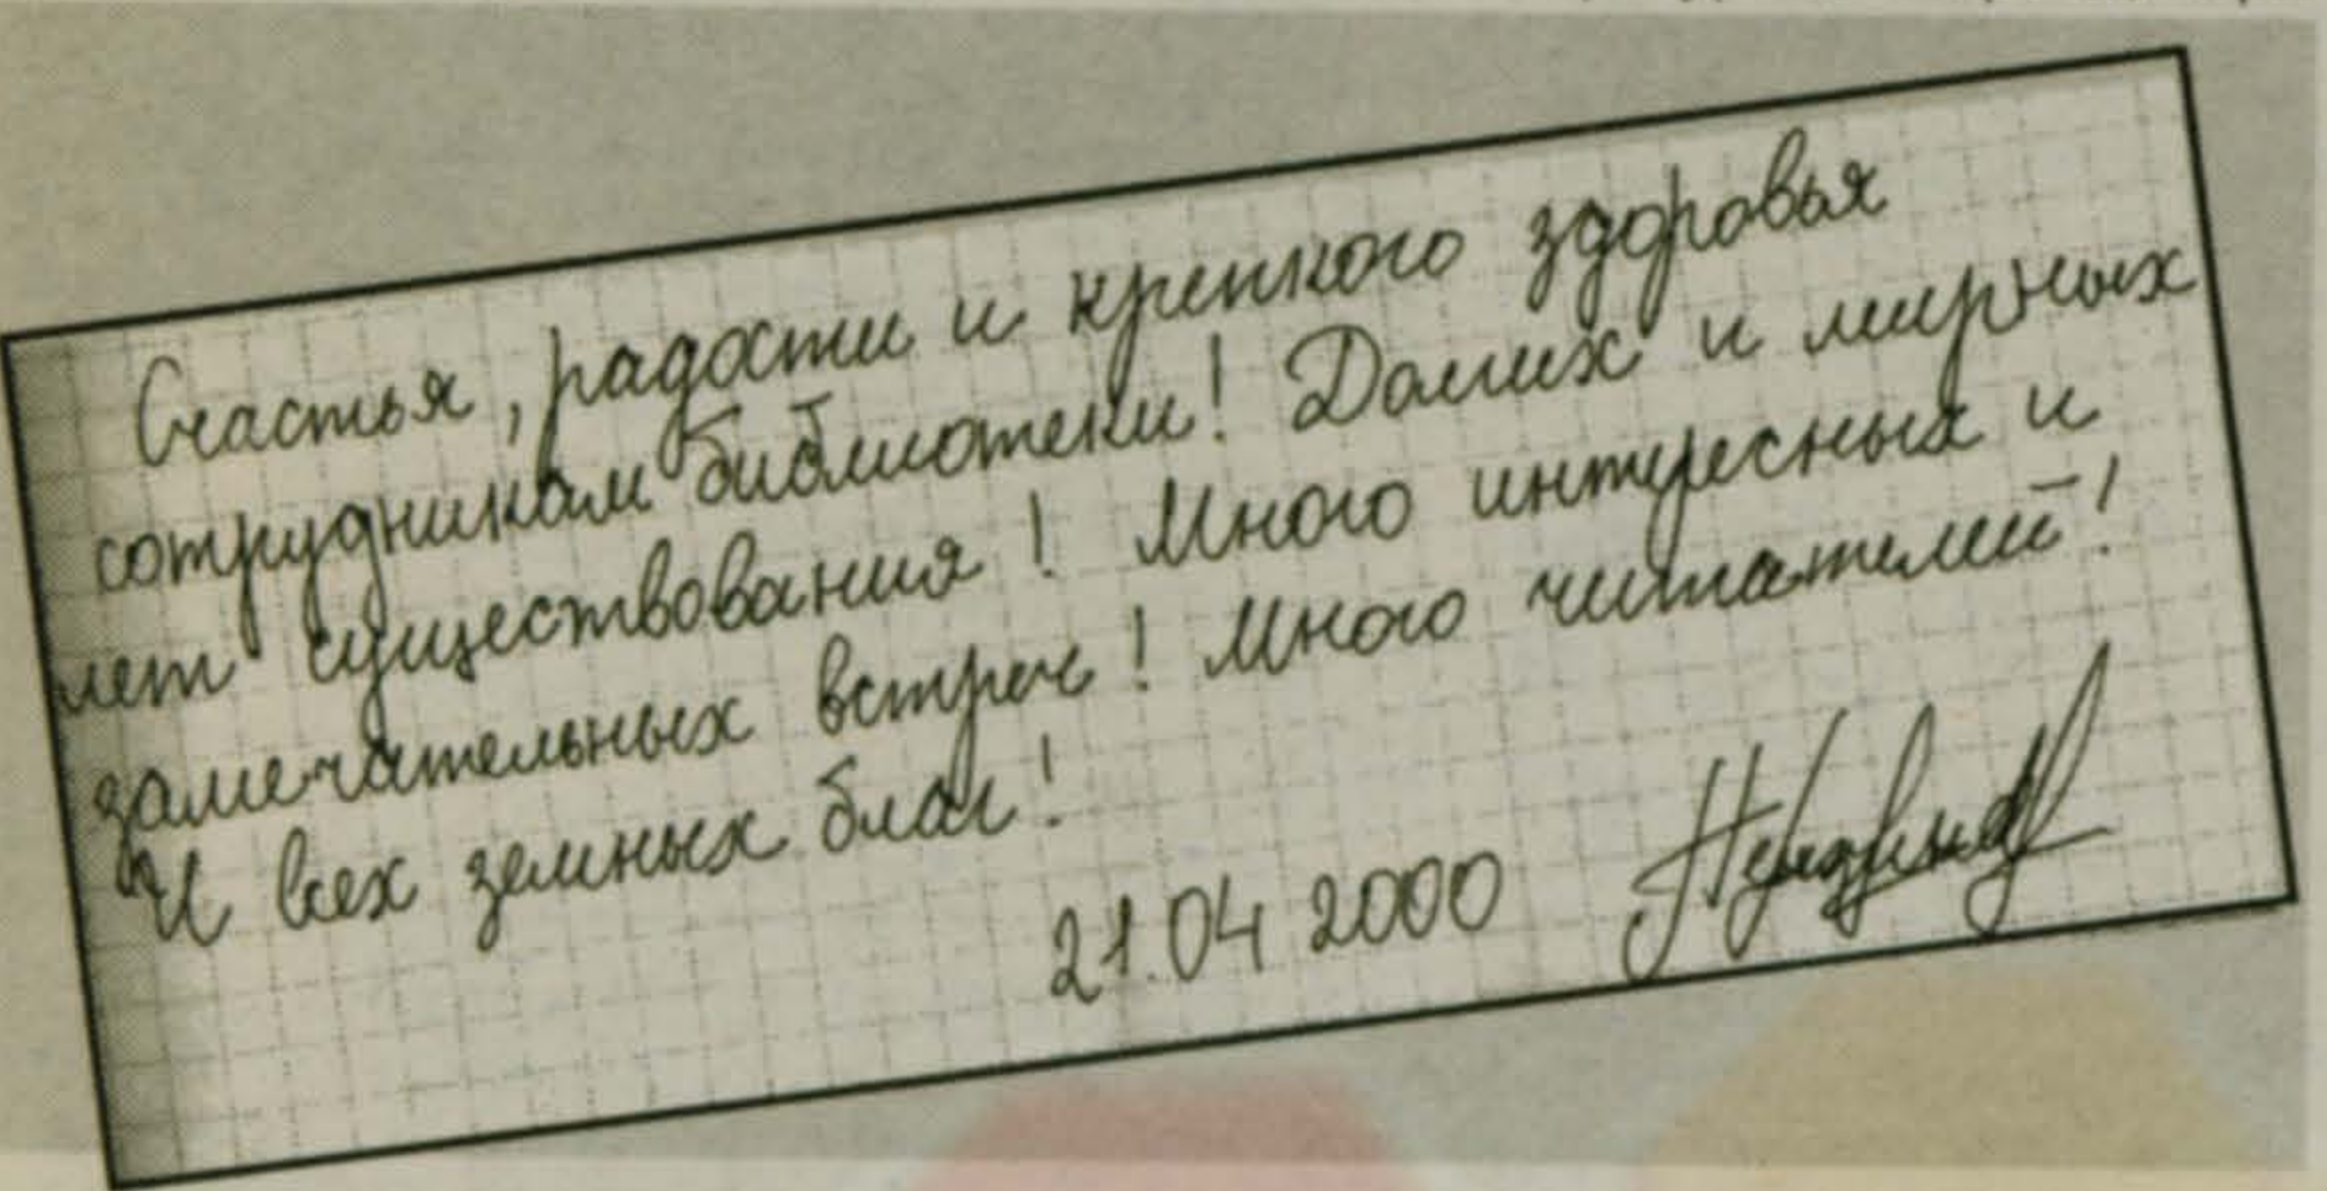 Счастья, радости и крепкого здоровья
сотрудникам библиотеки! Долгих и мирных
лет существования! Много интересных и
замечательных встреч! Много читателей!
И всех земных благ!
21.04 2000